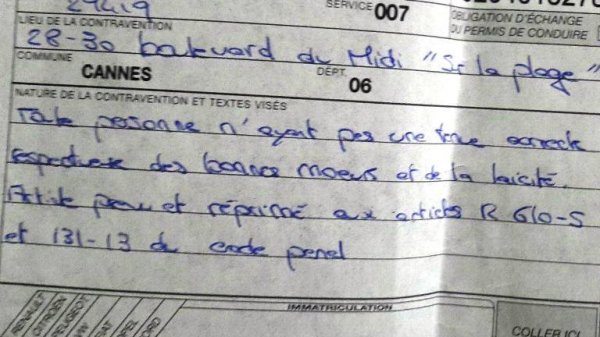 SERVICE 007
OBLIGATION D'ÉCHANGE
DU PERMIS DE CONDUIRE
LIEU DE LA CONTRAVENTION
28-30 boulevard du Midi "Sr la plage"
COMMUNE CANNES DÉPT. 06
NATURE DE LA CONTRAVENTION ET TEXTES VISÉS
Toute personne n'ayant pas une tenue correcte
respectueuse des bonnes moeurs et de la laicité.
Article prévu et réprimé aux articles R 610-5
et 131-13 du code penal
IMMATRICULATION
RENAULT
CITROEN
PEUGEOT
VW
COLLER ICI